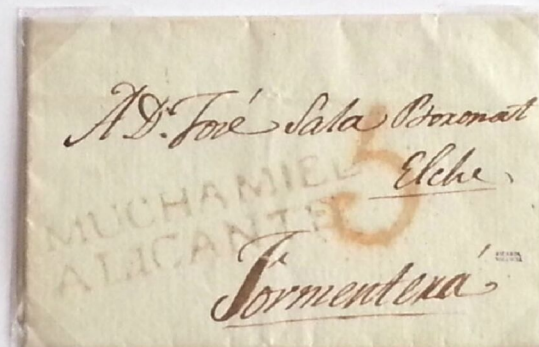 A Dn. José Sala Boronat
Elche
MUCHAMIEL
ALICANTE
5
Formenterá